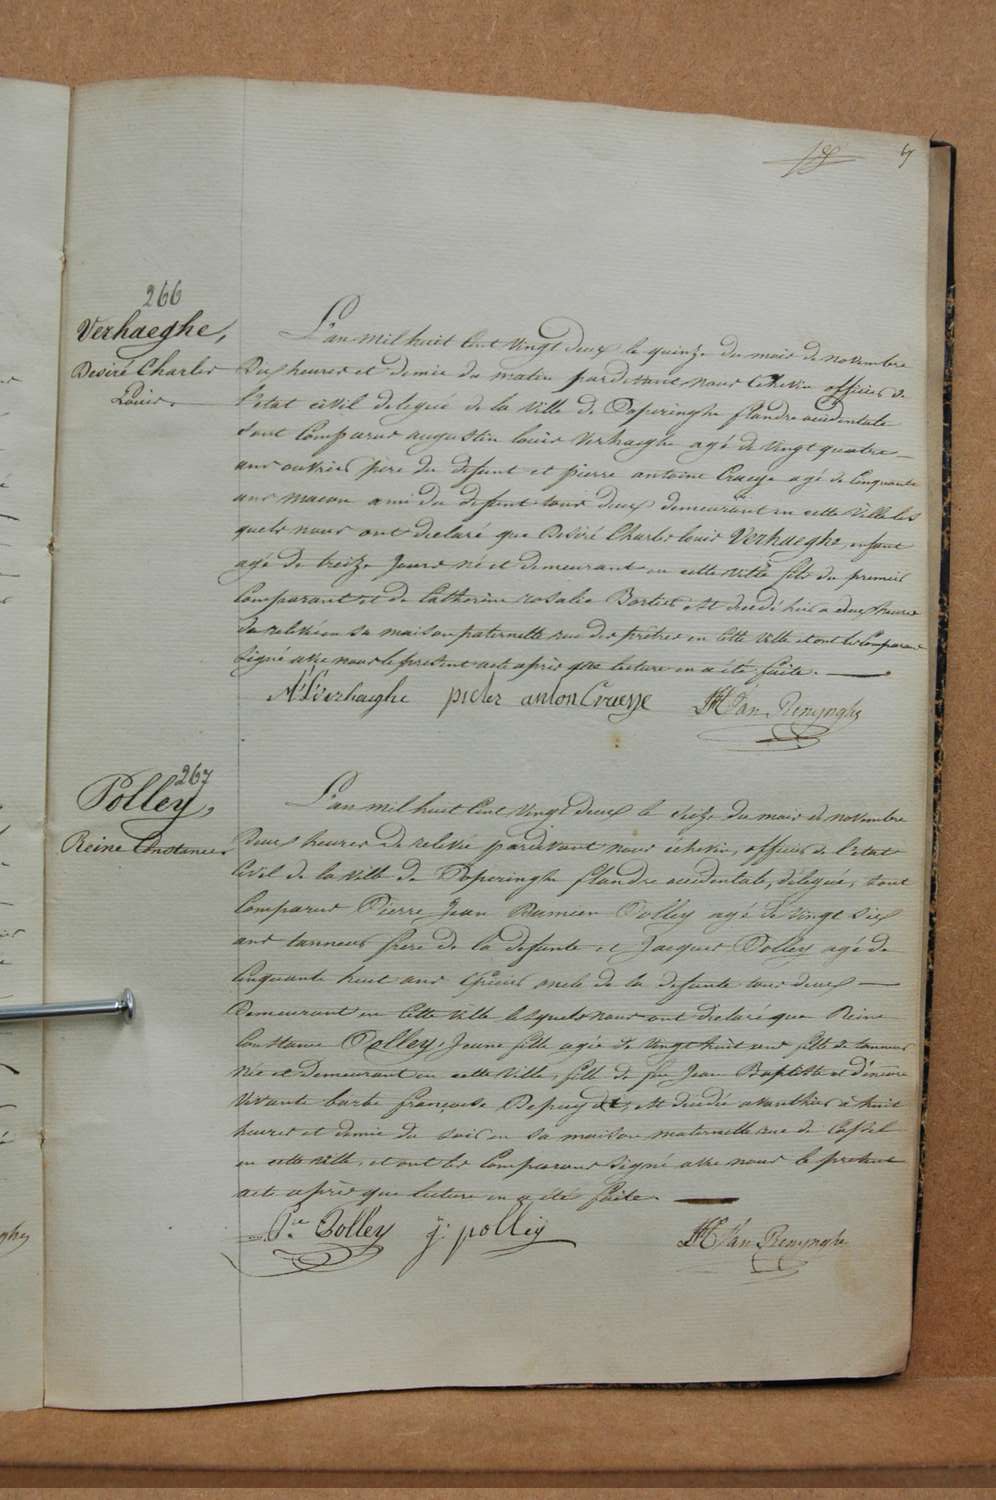 266
Verhaeghe,
Desiré Charles
Louis.
L'an mil huit cent vingt deux le quinze du mois de novembre
Dix heures et demie du matin pardevant nous Echevin officier de
l'etat civil delegué de la Ville de Poperinghe flandre occidentale
sont Comparus augustin louis Verhaeghe agé de vingt quatre
ans ouvrier père du defunt et pierre antoine Craeye agé de Cinquante
ans macon ami du defunt tous deux demeurant en cette Ville les
quels nous ont declaré que Desiré Charles louis Verhaeghe, enfant
agé de treize Jours né et demeurant en cette Ville fils du premier
Comparant et de Catherine rosalie Bartier est decedé hier a deux heures
de relevée en sa maison paternelle rue des prêtres en Cette Ville et ont les Comparans
Signé avec nous le present acte après que lecture en a été faite.
Verhaeghe pieter anton Craeye Van Renynghe
267
Polley,
Reine Constance.
L'an mil huit Cent Vingt deux le seize du mois de novembre
Deux heures de relevée pardevant nous echevin, officier de l'etat
Civil de la Ville de Poperinghe flandre occidentale, delegué, sont
Comparus Pierre Jean Polley agé de Vingt six
ans tanneur frere de la defunte et Jacques Polley agé de
Cinquante huit ans Epicier oncle de la defunte tous deux
Demeurant en Cette Ville lesquels nous ont declaré que Reine
Constance Polley, Jeune fille agée de Vingt huit ans fille de tanneur
Née et demeurant en cette Ville, fille de feu Jean Baptiste et d'encore
Vivante barbe françoise Depuydt, est decedée avanthier à huit
heures et demie du soir en sa maison maternelle rue de Cassel
en cette ville, et ont les Comparans Signé avec nous le present
acte après que lecture en a été faite.
Pre Polley j: polley Van Renynghe